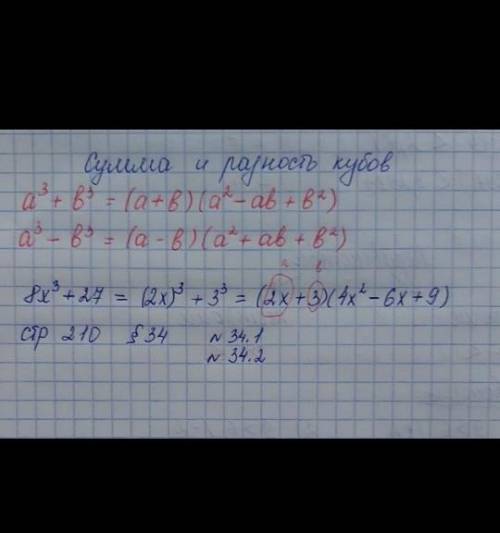 Сумма и разность кубов
a³ + b³ = (a + b)(a² - ab + b²)
a³ - b³ = (a - b)(a² + ab + b²)
a b
8x³ + 27 = (2x)³ + 3³ = (2x + 3)(4x² - 6x + 9)
стр 210 § 34 № 34.1
№ 34.2